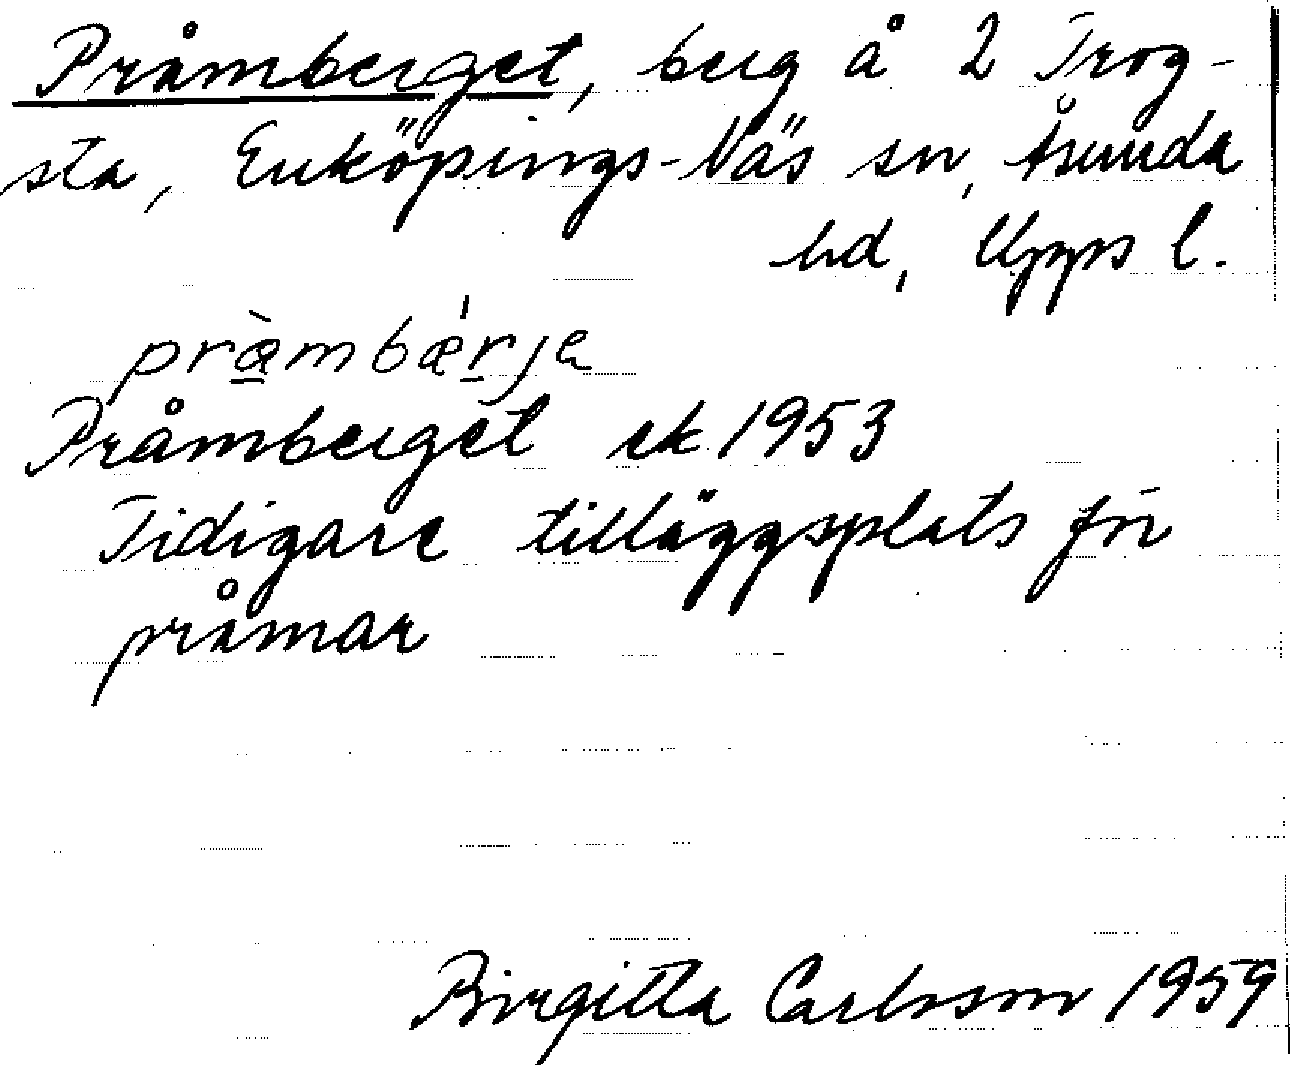 Pråmberget, berg å 2 Trog-
sta, Enköpings-Näs sn, Åsunda
hd, Upps l.
præ̀mbæ̀rja
Pråmberget ek 1953
Tidigare tilläggsplats för
pråmar
Birgitta Carlsson 1959